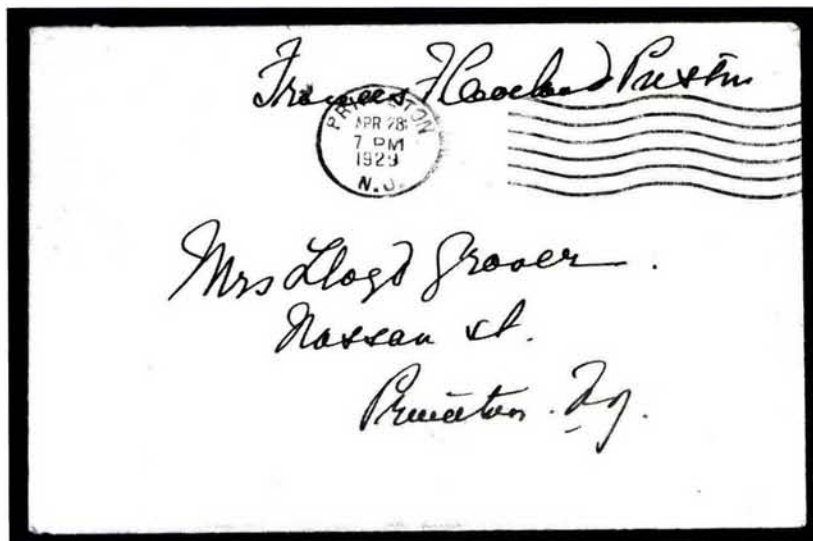 Frances F Cleveland Preston
PRINCETON
APR 28
7 PM
1929
N.J.
Mrs Lloyd Grover.
Nassau st.
Princeton. N.J.